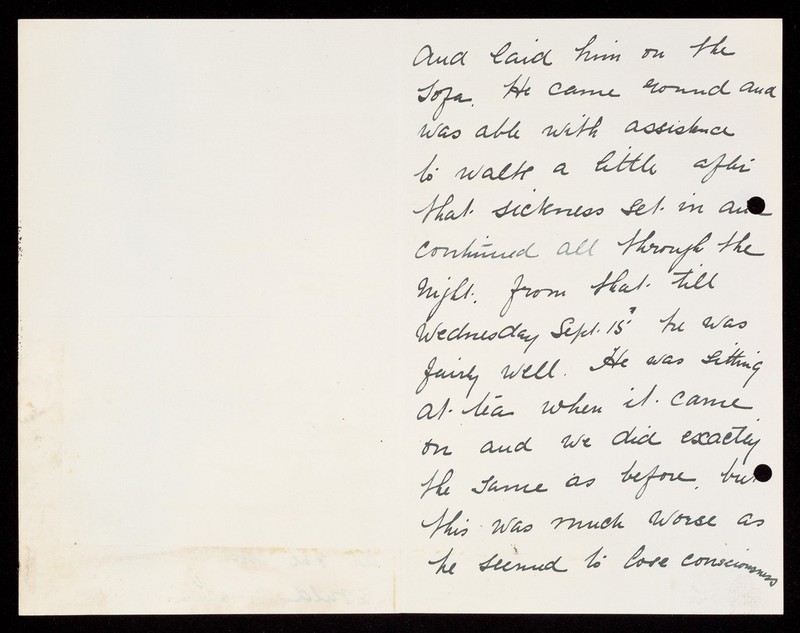 and laid him on the
sofa. He came round and
was able with assistance
to walk a little after
that sickness set in and
continued all through the
night, from that till
Wednesday Sept. 15? he was
fairly well. He was sitting
at tea when it came
on and we did exactly
the same as before, but
this was much worse as
he seemed to lose consciousness